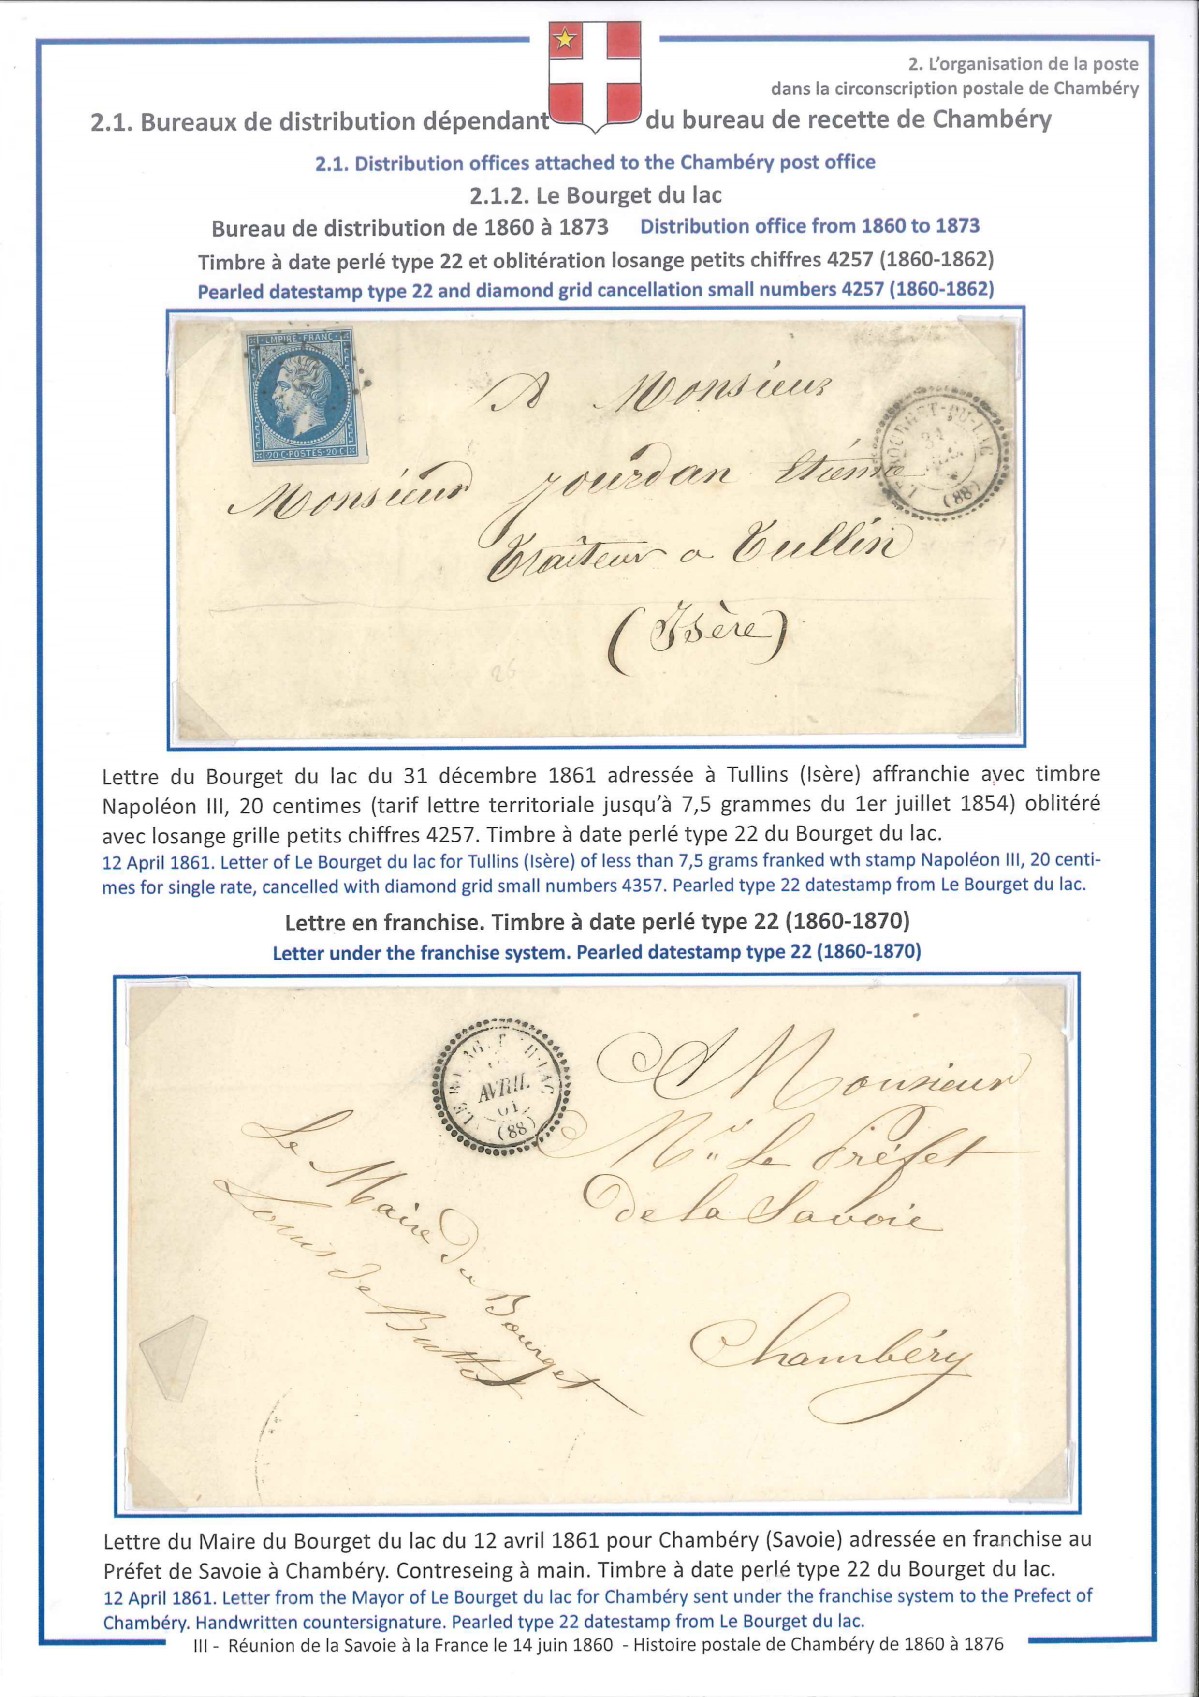 2. L'organisation de la poste
dans la circonscription postale de Chambéry
2.1. Bureaux de distribution dépendant du bureau de recette de Chambéry
2.1. Distribution offices attached to the Chambéry post office
2.1.2. Le Bourget du lac
Bureau de distribution de 1860 à 1873 Distribution office from 1860 to 1873
Timbre à date perlé type 22 et oblitération losange petits chiffres 4257 (1860-1862)
Pearled datestamp type 22 and diamond grid cancellation small numbers 4257 (1860-1862)
EMPIRE FRANC
20 C·POSTES·20 C
LE BOURGET-DU-LAC
31
(88)
A Monsieur
Monsieur Jourdan Etienne
Traiteur a Tullin
(Isère)
26
Lettre du Bourget du lac du 31 décembre 1861 adressée à Tullins (Isère) affranchie avec timbre
Napoléon III, 20 centimes (tarif lettre territoriale jusqu'à 7,5 grammes du 1er juillet 1854) oblitéré
avec losange grille petits chiffres 4257. Timbre à date perlé type 22 du Bourget du lac.
12 April 1861. Letter of Le Bourget du lac for Tullins (Isère) of less than 7,5 grams franked wth stamp Napoléon III, 20 centi-
mes for single rate, cancelled with diamond grid small numbers 4357. Pearled type 22 datestamp from Le Bourget du lac.
Lettre en franchise. Timbre à date perlé type 22 (1860-1870)
Letter under the franchise system. Pearled datestamp type 22 (1860-1870)
LE BOURGET-DU-LAC
AVRIL
61
(88)
A Monsieur
Mr Le Préfet
de la Savoie
Chambéry
Le Maire du Bourget
Louis de
Lettre du Maire du Bourget du lac du 12 avril 1861 pour Chambéry (Savoie) adressée en franchise au
Préfet de Savoie à Chambéry. Contreseing à main. Timbre à date perlé type 22 du Bourget du lac.
12 April 1861. Letter from the Mayor of Le Bourget du lac for Chambéry sent under the franchise system to the Prefect of
Chambéry. Handwritten countersignature. Pearled type 22 datestamp from Le Bourget du lac.
III - Réunion de la Savoie à la France le 14 juin 1860 - Histoire postale de Chambéry de 1860 à 1876